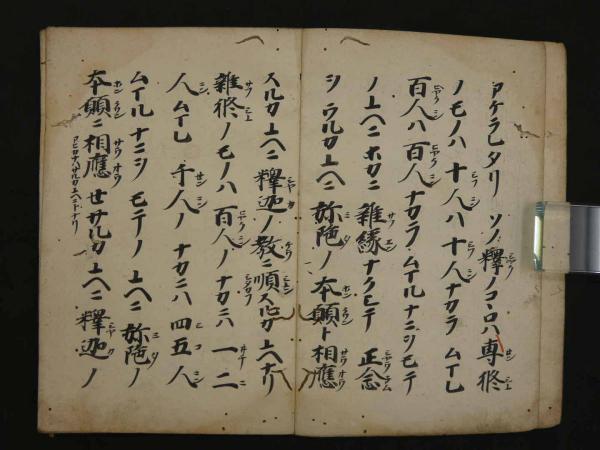 アケラレタリ ソノ釋ノコヽロハ専修
ノモノハ十人ハ十人ナカラムマレ
百人ハ百人ナカラムマルナニヲモテ
ノユヘニホカニ雜縁ナクシテ正念
ヲウルカユヘニ弥陁ノ本願ト相應
スルカユヘニ釋迦ノ教ニ順スルカユヘナリ
雜修ノモノハ百人ノナカニハ一二
人ムマレ千人ノナカニハ四五人
ムマルナニヲモテノユヘニ弥陁ノ
本願ニ相應セサルカユヘニ釋迦ノ